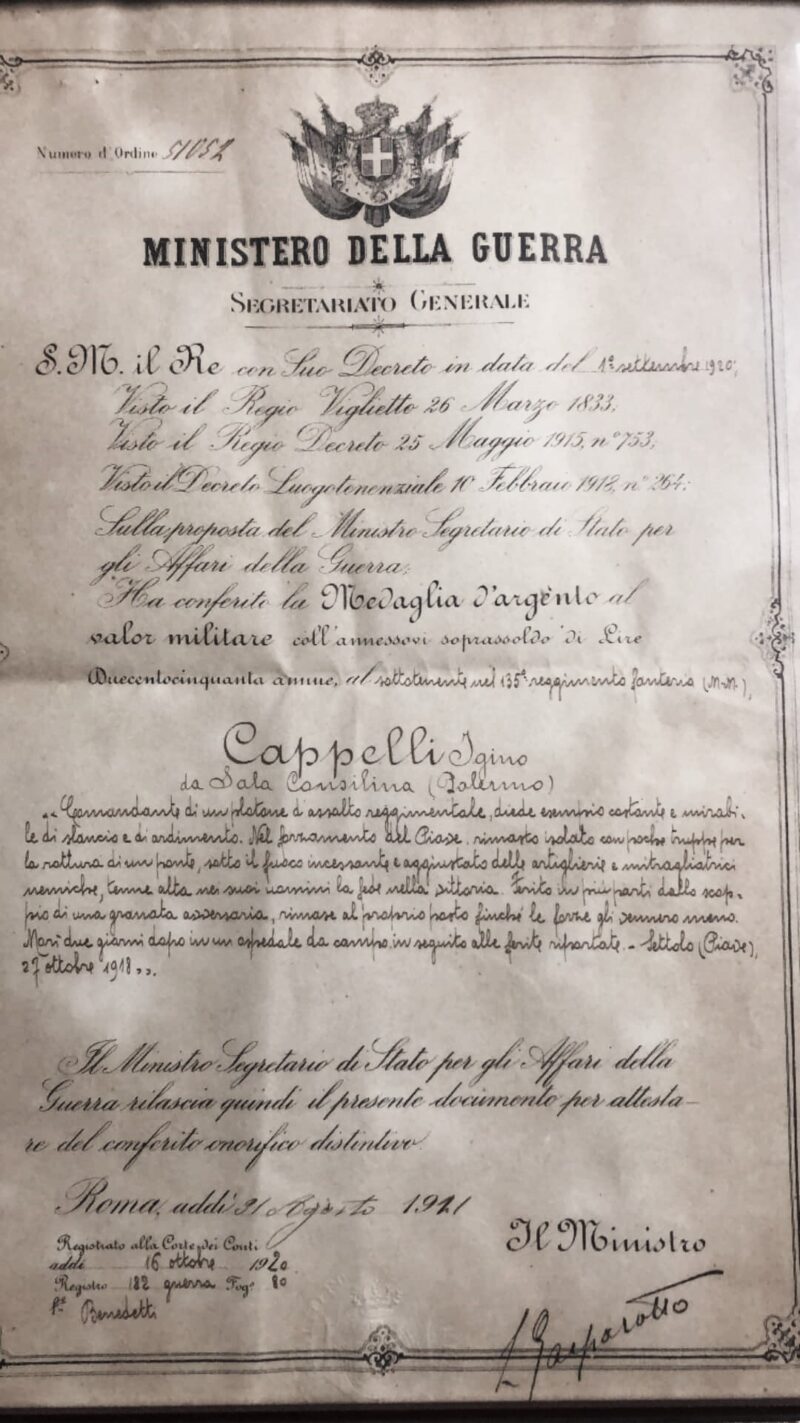 Numero d'Ordine 51052
MINISTERO DELLA GUERRA
SEGRETARIATO GENERALE
S. M. il Re con Suo Decreto in data del 1° settembre 1920;
Visto il Regio Viglietto 26 Marzo 1833;
Visto il Regio Decreto 25 Maggio 1915, n° 753;
Visto il Decreto Luogotenenziale 10 Febbraio 1918, n° 264;
Sulla proposta del Ministro Segretario di Stato per
gli Affari della Guerra;
Ha conferito la Medaglia d'argento al
valor militare coll'annessovi soprassoldo di Lire
Duecentocinquanta annue, al sottotenente nel 135° reggimento fanteria (M.M.),
Cappelli Igino
da Sala Consilina (Salerno)
"Comandante di un plotone d'assalto reggimentale, diede esempio costante e mirabi-
le di slancio e di ardimento. Nel forzamento del Piave, rimasto isolato con poche truppe per
la rottura di un ponte, sotto il fuoco incessante e aggiustato delle artiglierie e mitragliatrici
nemiche, tenne alta nei suoi uomini la fede nella vittoria. Ferito in più parti dallo scop-
pio di una granata avversaria, rimase al proprio posto finché le forze gli vennero meno.
Morì due giorni dopo in un ospedale da campo in seguito alle ferite riportate. - Settolo (Piave),
27 ottobre 1918".
Il Ministro Segretario di Stato per gli Affari della
Guerra rilascia quindi il presente documento per attesta-
re del conferito onorifico distintivo.
Roma, addì 31 Agosto 1921
Registrato alla Corte dei Conti
addì 16 ottobre 1920
Registro 182 guerra Fog° 80
Fto Benedetti
Il Ministro
L Gasparotto